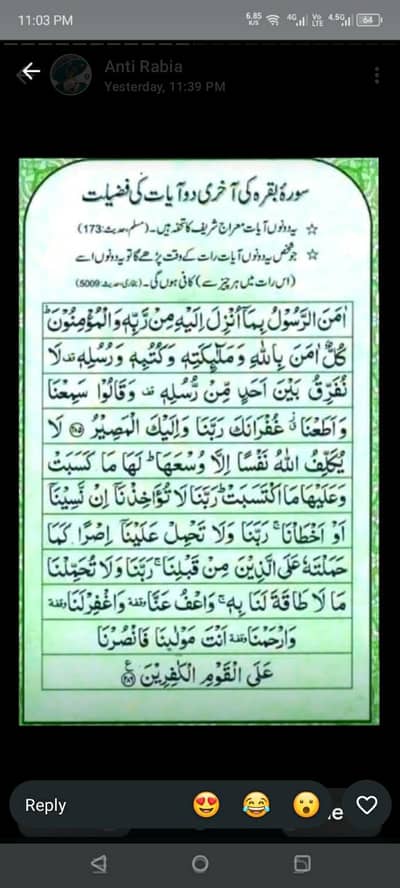 11:03 PM
6.85 K/S 4G Vo LTE 4.5G 64
Anti Rabia
Yesterday, 11:39 PM
سورۂ بقرہ کی آخری دو آیات کی فضیلت
☆ یہ دونوں آیات معراج شریف کا تحفہ ہیں۔ (مسلم، حدیث: 173)
☆ جو شخص یہ دونوں آیات رات کے وقت پڑھے گا تو یہ دونوں اسے
(اس رات میں ہر چیز سے) کافی ہوں گی۔ (بخاری، حدیث: 5009)
اٰمَنَ الرَّسُوْلُ بِمَاۤ اُنْزِلَ اِلَیْهِ مِنْ رَّبِّهٖ وَ الْمُؤْمِنُوْنَ ؕ
كُلٌّ اٰمَنَ بِاللّٰهِ وَ مَلٰٓىِٕكَتِهٖ وَ كُتُبِهٖ وَ رُسُلِهٖ ۫ لَا
نُفَرِّقُ بَیْنَ اَحَدٍ مِّنْ رُّسُلِهٖ ۫ وَ قَالُوْا سَمِعْنَا
وَ اَطَعْنَا ٭۫ غُفْرَانَكَ رَبَّنَا وَ اِلَیْكَ الْمَصِیْرُ ﴿۲۸۵﴾ لَا
یُكَلِّفُ اللّٰهُ نَفْسًا اِلَّا وُسْعَهَا ؕ لَهَا مَا كَسَبَتْ
وَ عَلَیْهَا مَا اكْتَسَبَتْ ؕ رَبَّنَا لَا تُؤَاخِذْنَاۤ اِنْ نَّسِیْنَاۤ
اَوْ اَخْطَاْنَا ۚ رَبَّنَا وَ لَا تَحْمِلْ عَلَیْنَاۤ اِصْرًا كَمَا
حَمَلْتَهٗ عَلَی الَّذِیْنَ مِنْ قَبْلِنَا ۚ رَبَّنَا وَ لَا تُحَمِّلْنَا
مَا لَا طَاقَةَ لَنَا بِهٖ ۚ وَ اعْفُ عَنَّا وقفة وَ اغْفِرْ لَنَا وقفة
وَ ارْحَمْنَا وقفة اَنْتَ مَوْلٰىنَا فَانْصُرْنَا
عَلَی الْقَوْمِ الْكٰفِرِیْنَ ﴿۲۸۶﴾ ع
Reply